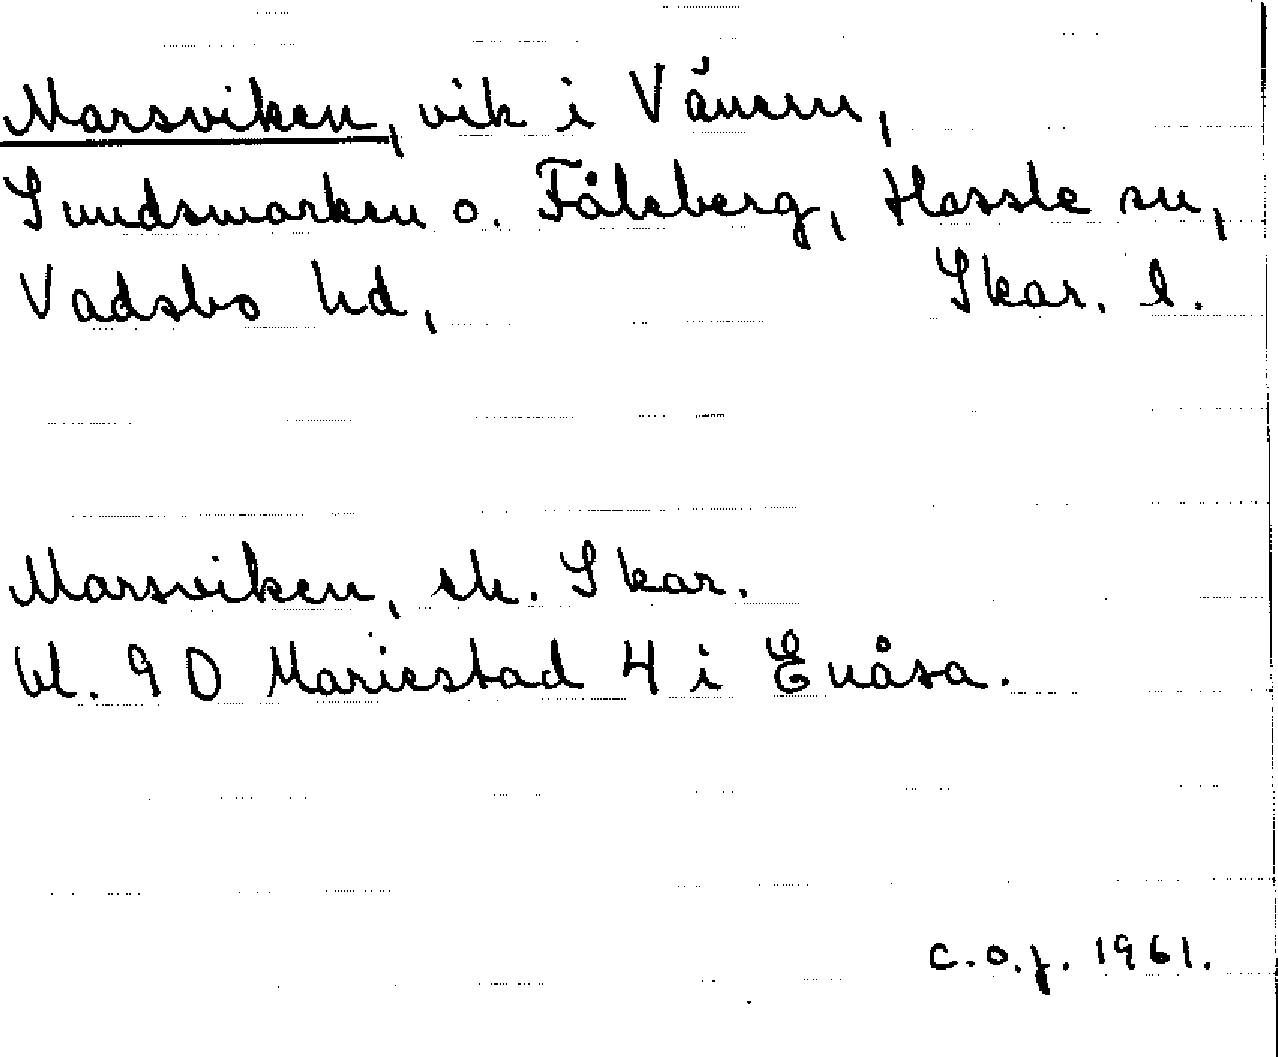 Marsviken, vik i Vänern,
Sundsmarken o. Fåleberg, Hassle sn,
Vadsbo hd, Skar. l.
Marsviken, ek. Skar.
bl. 9 D Mariestad 4 i Enåsa.
C.O.J. 1961.